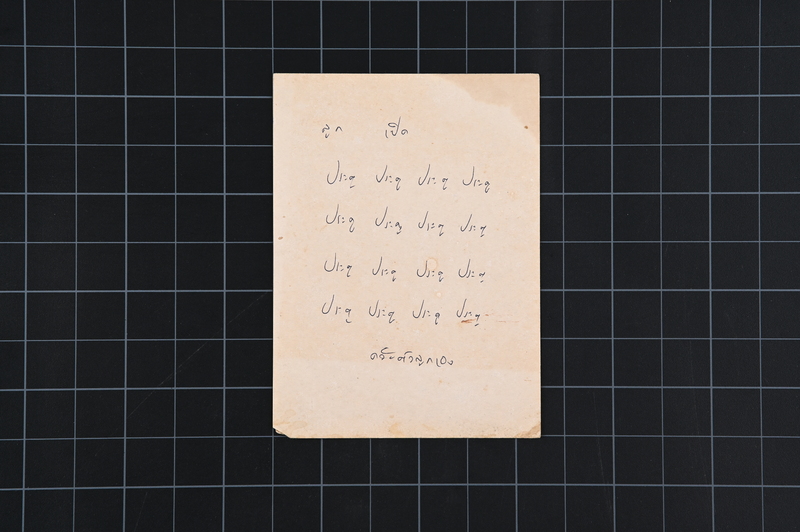 ลูก เปิด
ประตู ประตู ประตู ประตู
ประตู ประตู ประตู ประตู
ประตู ประตู ประตู ประตู
ประตู ประตู ประตู ประตู
ตัวลูกเอง